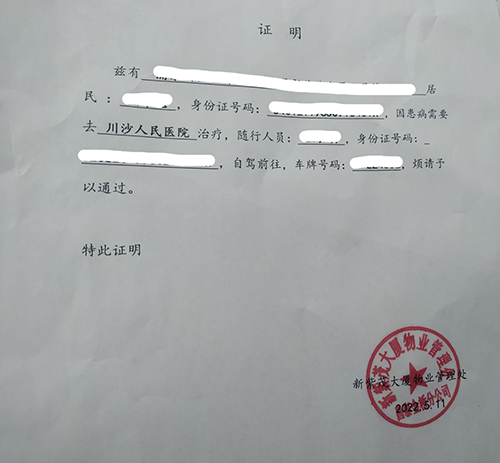 证 明
兹有 居
民： ，身份证号码： ，因患病需要
去 川沙人民医院 治疗，随行人员： ，身份证号码：_
，自驾前往，车牌号码： ，烦请予
以通过。
特此证明
新紫茂大厦物业管理处
2022.5.11